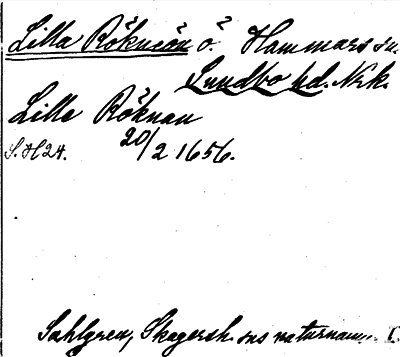 Lilla Rökneön ö. Hammars sn.
Sundbo hd. Nrk.
Lille Röknau
S. H 24. 20/2 1656.
Sahlgren, Skagersh. sns naturnamn I.